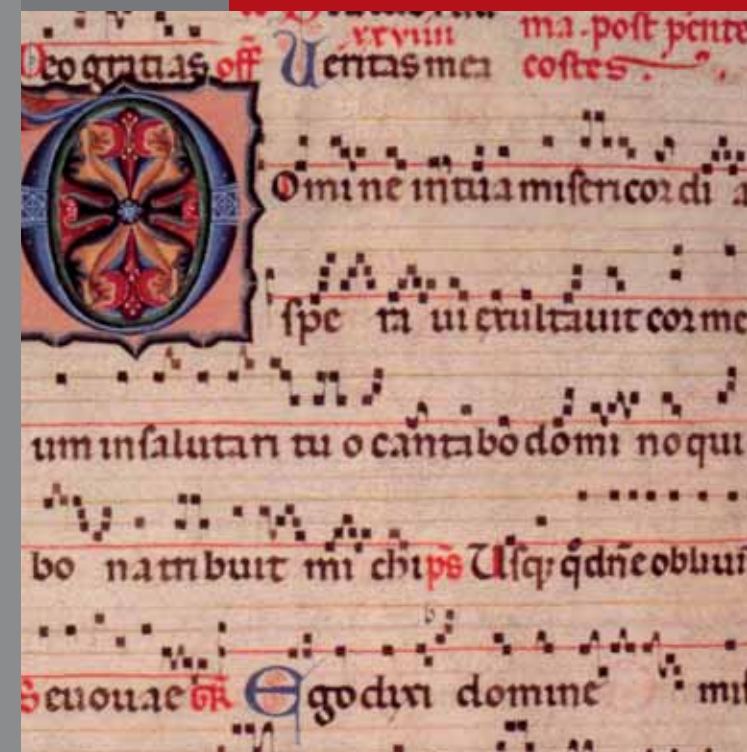 xxviiii ma. post pente
Deo gratias off Ueritas mea costes.
DOmine in tua misericordi a
spe ra ui exultauit cor me
um in salutari tu o cantabo domi no qui
bo na tribuit mi chi ps Usq; qd dñe obliui
Seuouae GR Ego dixi domine mi